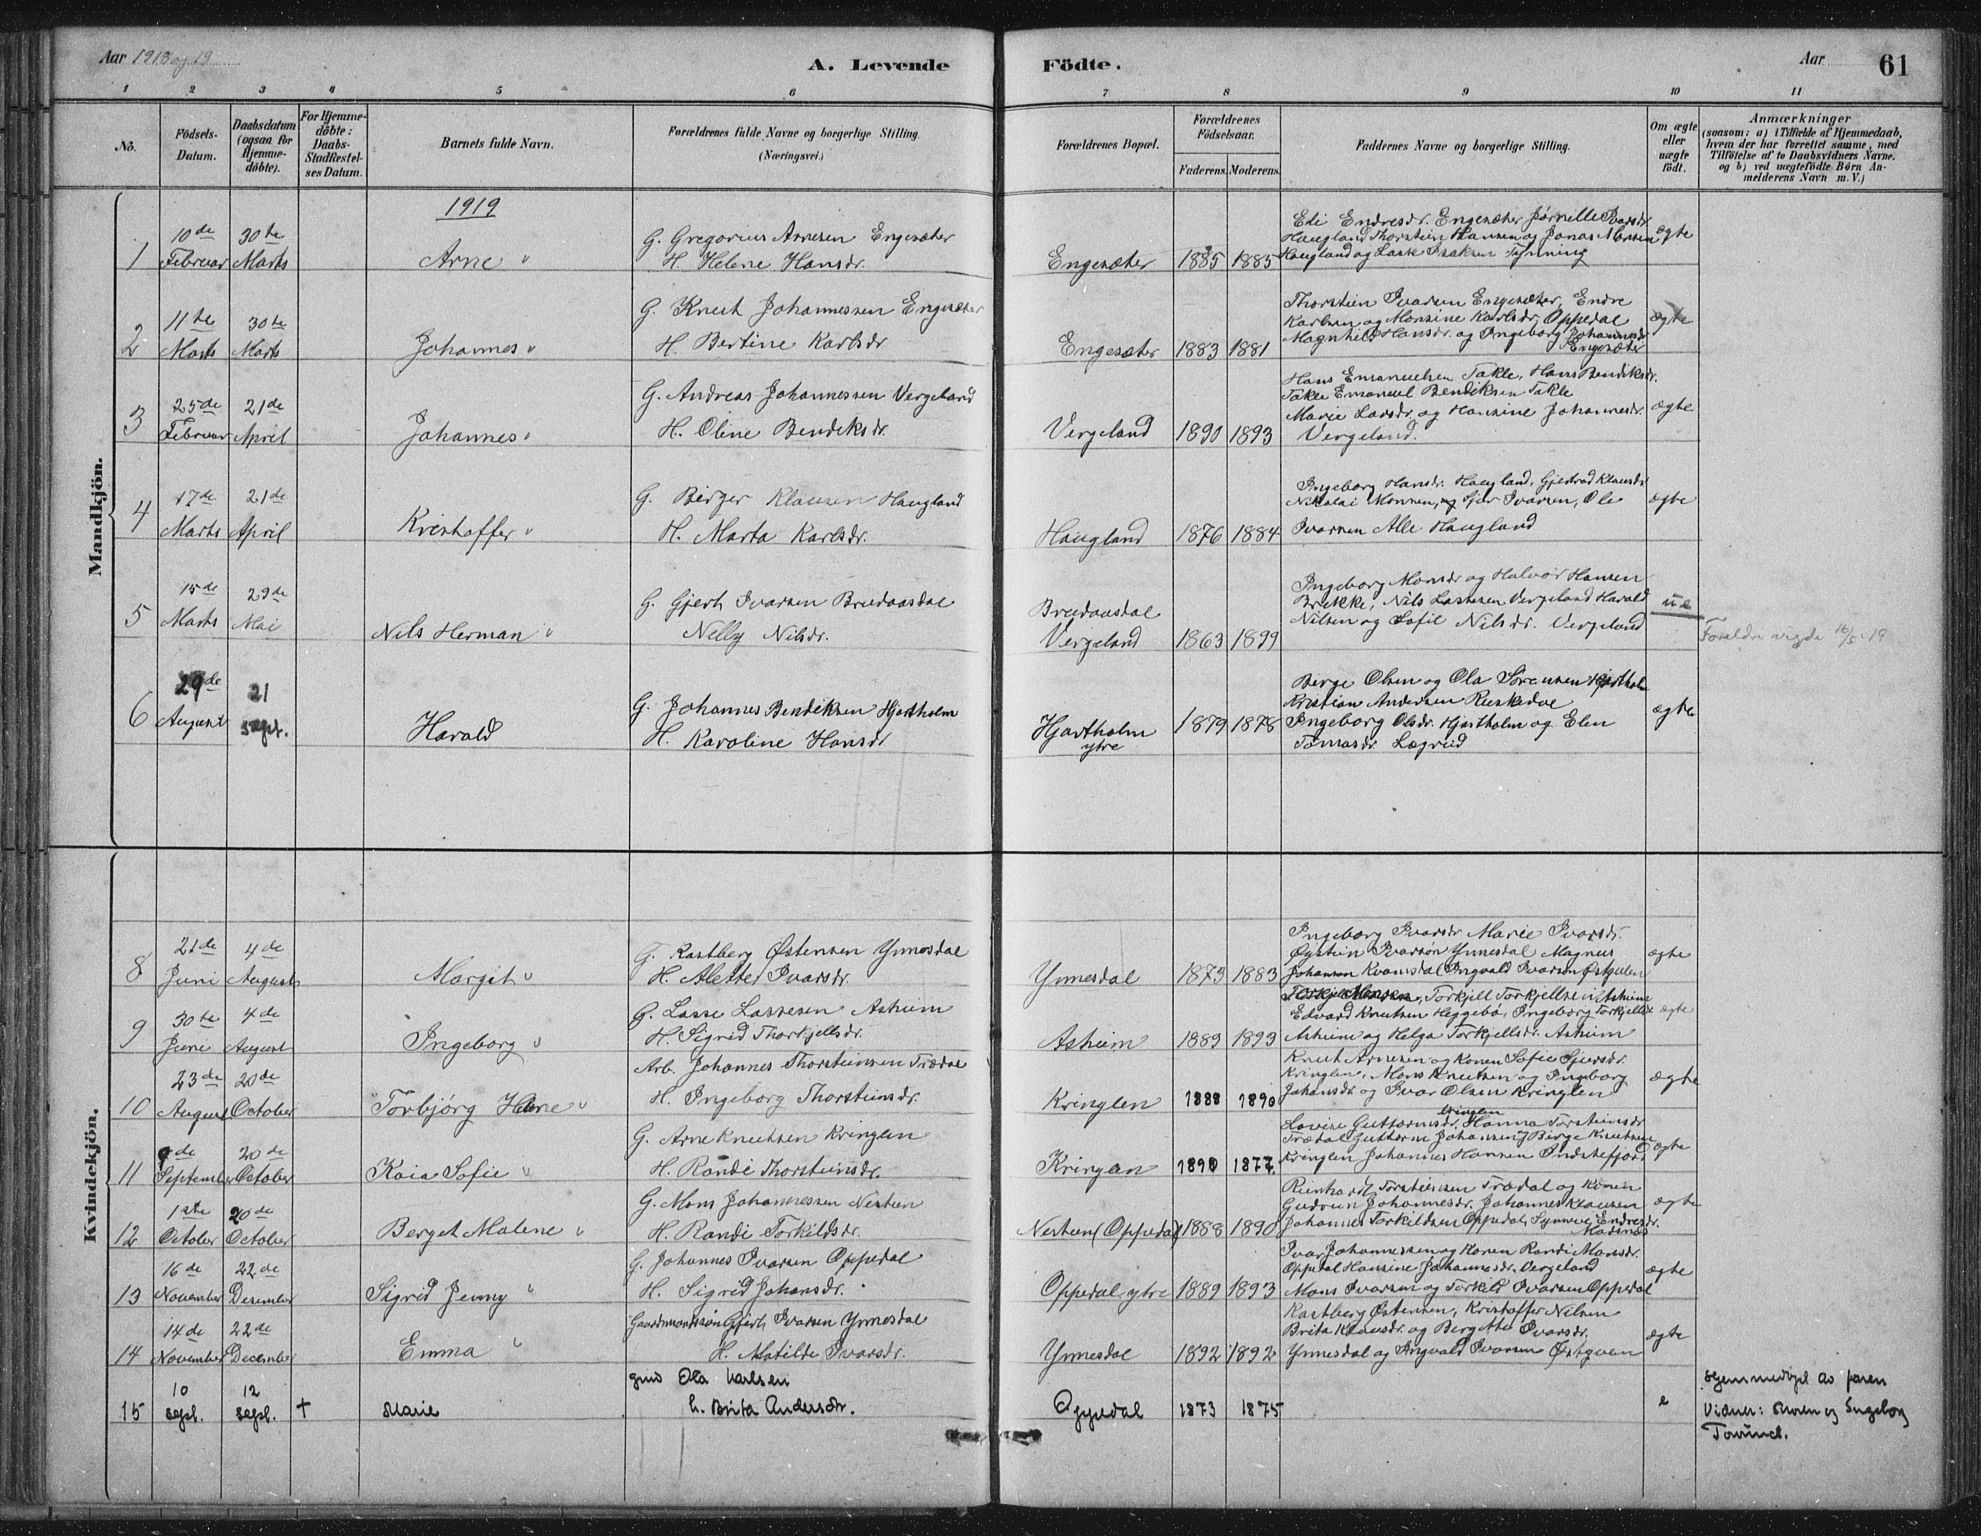 Aar 1918 og 19
A. Levende
Födte.
Aar
61
1 2 3 4 5 6 7 8 9 10 11
No.
Födsels-
Datum.
Daabsdatum
(ogsaa for
Hjemme-
döbte).
For Hjemme-
döbte:
Daabs-
Stadfæstel-
ses Datum.
Barnets fulde Navn.
Forældrenes fulde Navne og borgerlige Stilling.
(Næringsvei.)
Forældrenes Bopæl.
Forældrenes
Födselsaar.
Faderens. Moderens.
Faddernes Navne og borgerlige Stilling.
Om ægte
eller
uægte
födt.
Anmærkninger
(saasom: a) i Tilfælde af Hjemmedaab,
hvem der har forrettet samme, med
Tilföielse af to Daabsvidners Navne.
og b) ved uægtefödte Börn An-
melderens Navn m. V.)
Mandkjön.
1919
1
10de
Februar
30te
Marts
Arne "
G. Gregorius Arnesen Engesæter
H. Helene Hansdr.
Engesæter
1885 1885
Edi Endresdr. Engesæter Pernelle Ivarsdr.
Haugland Thorstein Hansen og Jonas Monsen
Haugland og Lasse Isaksen Tynning
ægte
2
11te
Marts
30te
Marts
Johannes "
G. Knut Johannessen Engesæter
H. Bertine Karlsdr
Engesæter
1883 1881
Thorstein Ivarsen Engesæter, Endre
Karlsen og Monsine Karlsdr. Oppedal
Magnhild Hansdr. og Ingeborg Johannesdr
Engesæter
ægte
3
25de
Februar
21de
April
Johannes "
G. Andreas Johannessen Vergeland
H. Oline Bendiksdr.
Vergeland
1890 1893
Hans Emanuelsen Takle, Hans Bendiksdr.
Takle Emanuel Bendiksen Takle
Marie Larsdr. og Hansine Johannesdr.
Vergeland.
ægte
4
17de
Marts
21de
April
Kristoffer "
G. Birger Klausen Haugland
H. Marta Karlsdr.
Haugland
1876 1884
Ingeborg Hansdr. Haugland, Gjertrud Klausdr
Nikolai Monsen, og Sjur Ivarsen, Ole
Ivarsen Alle Haugland
ægte
5
15de
Marts
29de
Mai
Nils Herman "
G. Gjert Ivarsen Breidaasdal
Nelly Nilsdr.
Breidaasdal
Vergeland
1863 1899
Ingeborg Monsdr og Halvor Hansen
Brekke, Nils Lassesen Vergeland Harald
Nilsen og Sofie Nilsdr. Vergeland
uæ
Foreldre vigde 16/5-19
6
29de
August
21
sept.
Harald
G. Johannes Bendiksen Hjartholm
H. Karoline Hansdr
Hjartholm
ytre
1879 1878
Birge Olsen og Ola Sørensen Hjartholm
Kristian Andersen Risnedal
Ingeborg Olsdr. Hjartholm og Elen
Tomasdr. Lægreid
ægte
Kvindekjön.
8
21de
Juni
4de
August
Margit "
G. Rastberg Østensen Ynnesdal
H. Alette Ivarsdr.
Ynnesdal
1873 1883
Ingeborg Ivarsdr Marie Ivarsdr.
Øystein Ivarsøn Ynnesdal Magnus
Johansen Kvamsdal Ingvald Ivarsen Østgulen
ægte
9
30te
Juni
4de
August
Ingeborg "
G. Lasse Lassesen Asheim
H. Sigrid Thorkjellsdr.
Asheim
1889 1893
Torkjel Monsen, Torkjell Torkjellsen Asheim
Edvard Knutsen Heggebø, Ingeborg Torkjellsdr
Asheim og Helga Torkjellsdr. Asheim
ægte
10
23de
August
20de
October
Torbjörg Helene "
Arb. Johannes Thorsteinsen Trædal
H. Ingeborg Thorsteinsdr.
Kringlen
1888 1890
Knut Arnesen og Konen Sofie Sjursdr.
Kringlen, Mons Knutsen og Ingeborg
Johansdr. og Ivar Olsen Kringlen
ægte
11
9de
September
20de
October
Kaia Sofie "
G. Arne Knutsen Kringlen
H. Randi Thorsteinsdr.
Kringlen
1890 1877.
Lovise Guttormsdr. Kringlen Hanna Torsteinsdr
Trædal Guttorm Johansen, Birge Knutsen
Kringlen Johannes Hansen Indrefjord
ægte
12
1ste
October
20de
October
Berget Malene "
G. Mons Johannessen Nistuen
H. Randi Torkildsdr.
Nestuen (Oppedal)
1888 1890
Reinhardt Torsteinsen Trædal og Konen
Gudrun Johannesdr. Johannes Klausen
Johannes Torkildsen Oppedal, Synneve Endresdr.
ægte
13
16de
November
22de
Desember
Sigrid Jenny "
G. Johannes Ivarsen Oppedal
H. Sigrid Johansdr.
Oppedal ytre
1889 1893
Ivar Johannessen og Konen Randi Monsdr.
Oppedal Hansine Johannesdr. Vergeland
Mons Ivarsen og Torkild Ivarsen Oppedal
ægte
14
14de
November
22de
December
Emma "
Gaardmandssøn Gjert Ivarsen Ynnesdal
H. Matilde Ivarsdr.
Ynnesdal
1892 1892
Rastberg Østensen, Kristoffer Nilsen
Brita Klausdr. og Bergitte Ivarsdr.
Ynnesdal og Ingvald Ivarsen Østgulen
ægte
15
10
sept.
12
sept.
†
Marie
gmd Ola Karlsen
h. Brita Andersdr.
Oppedal
1873 1875
e
Hjemmedøpt av faren
Vidner: Moren og Ingeborg